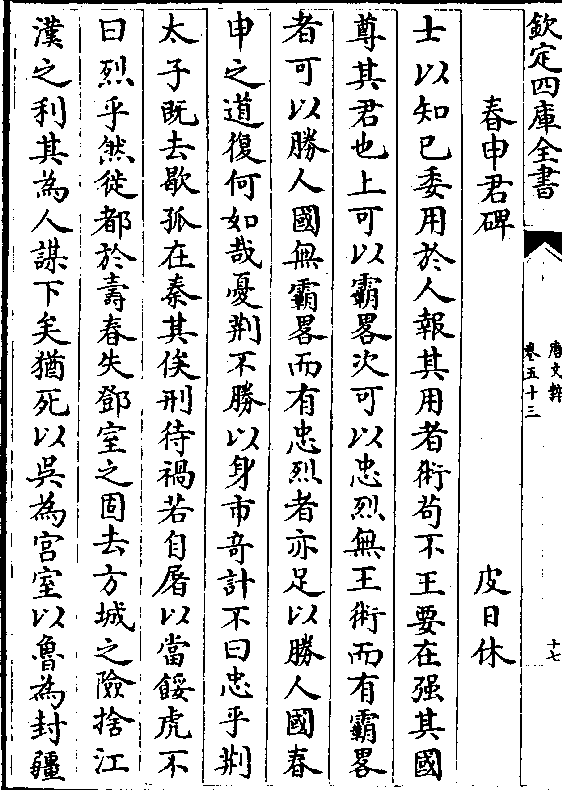 欽定四庫全書
唐文粹
卷五十三
十七
春申君碑
皮日休
士以知已委用於人報其用者術苟不王要在强其國
尊其君也上可以霸畧次可以忠烈無王術而有霸畧
者可以勝人國無霸畧而有忠烈者亦足以勝人國春
申之道復何如哉憂荆不勝以身市奇計不曰忠乎荆
太子既去歇孤在秦其俟刑待禍若自屠以當餒虎不
曰烈乎然徙都於壽春失鄧室之固去方城之險捨江
漢之利其為人謀下矣猶死以吳為宫室以魯為封疆